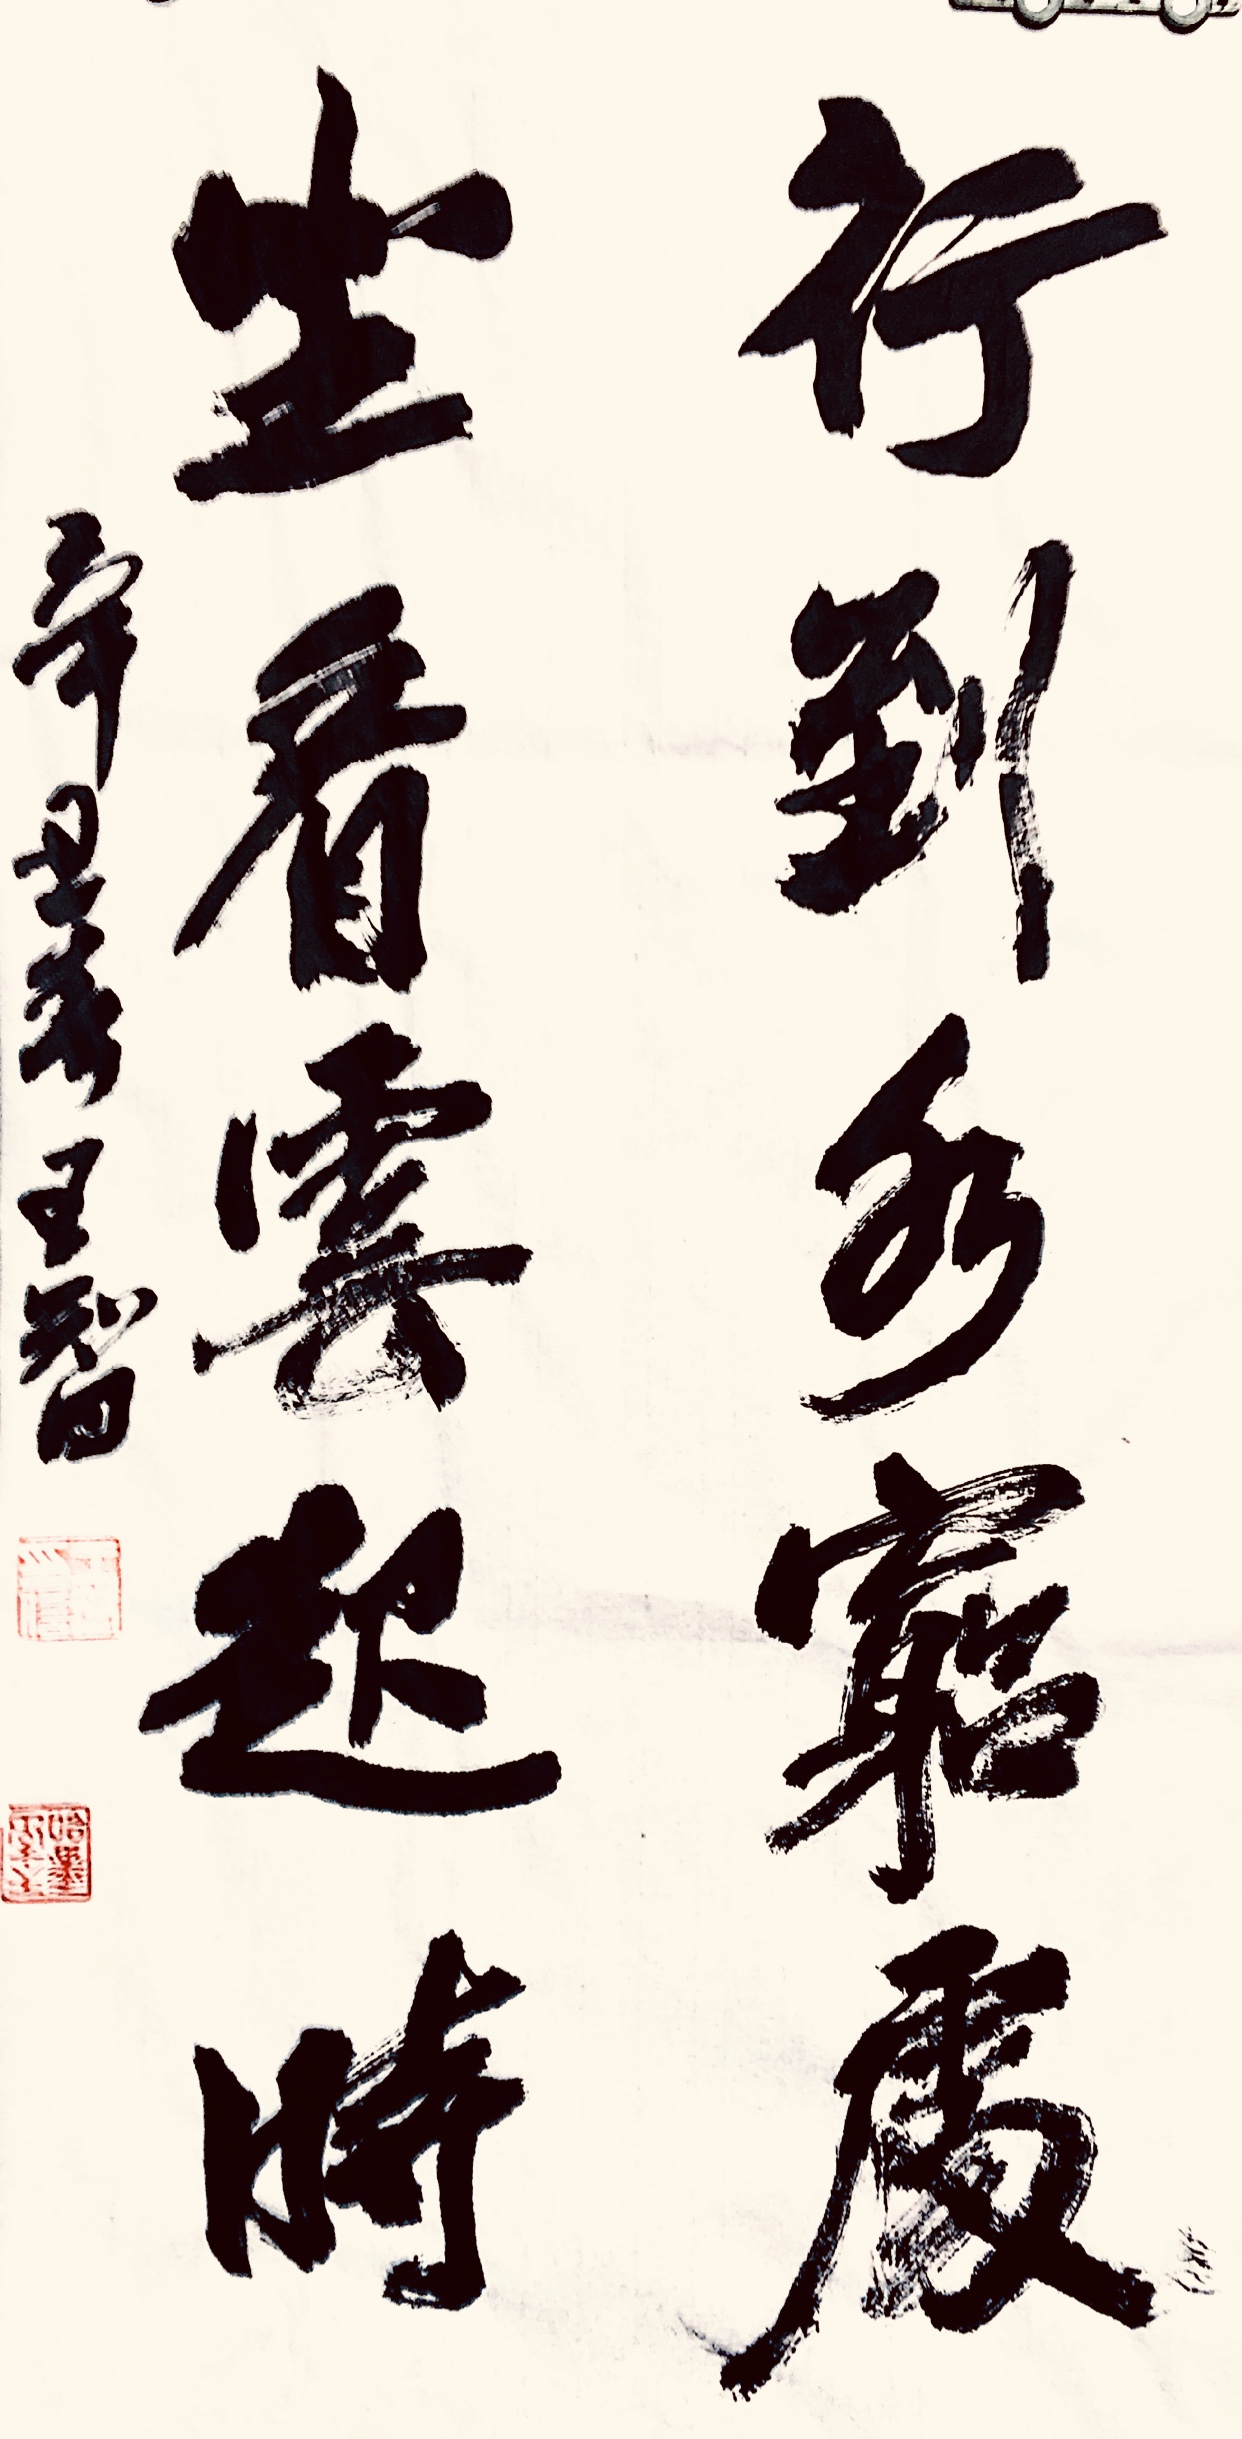 行到水窮處
坐看雲起時
辛丑春王智